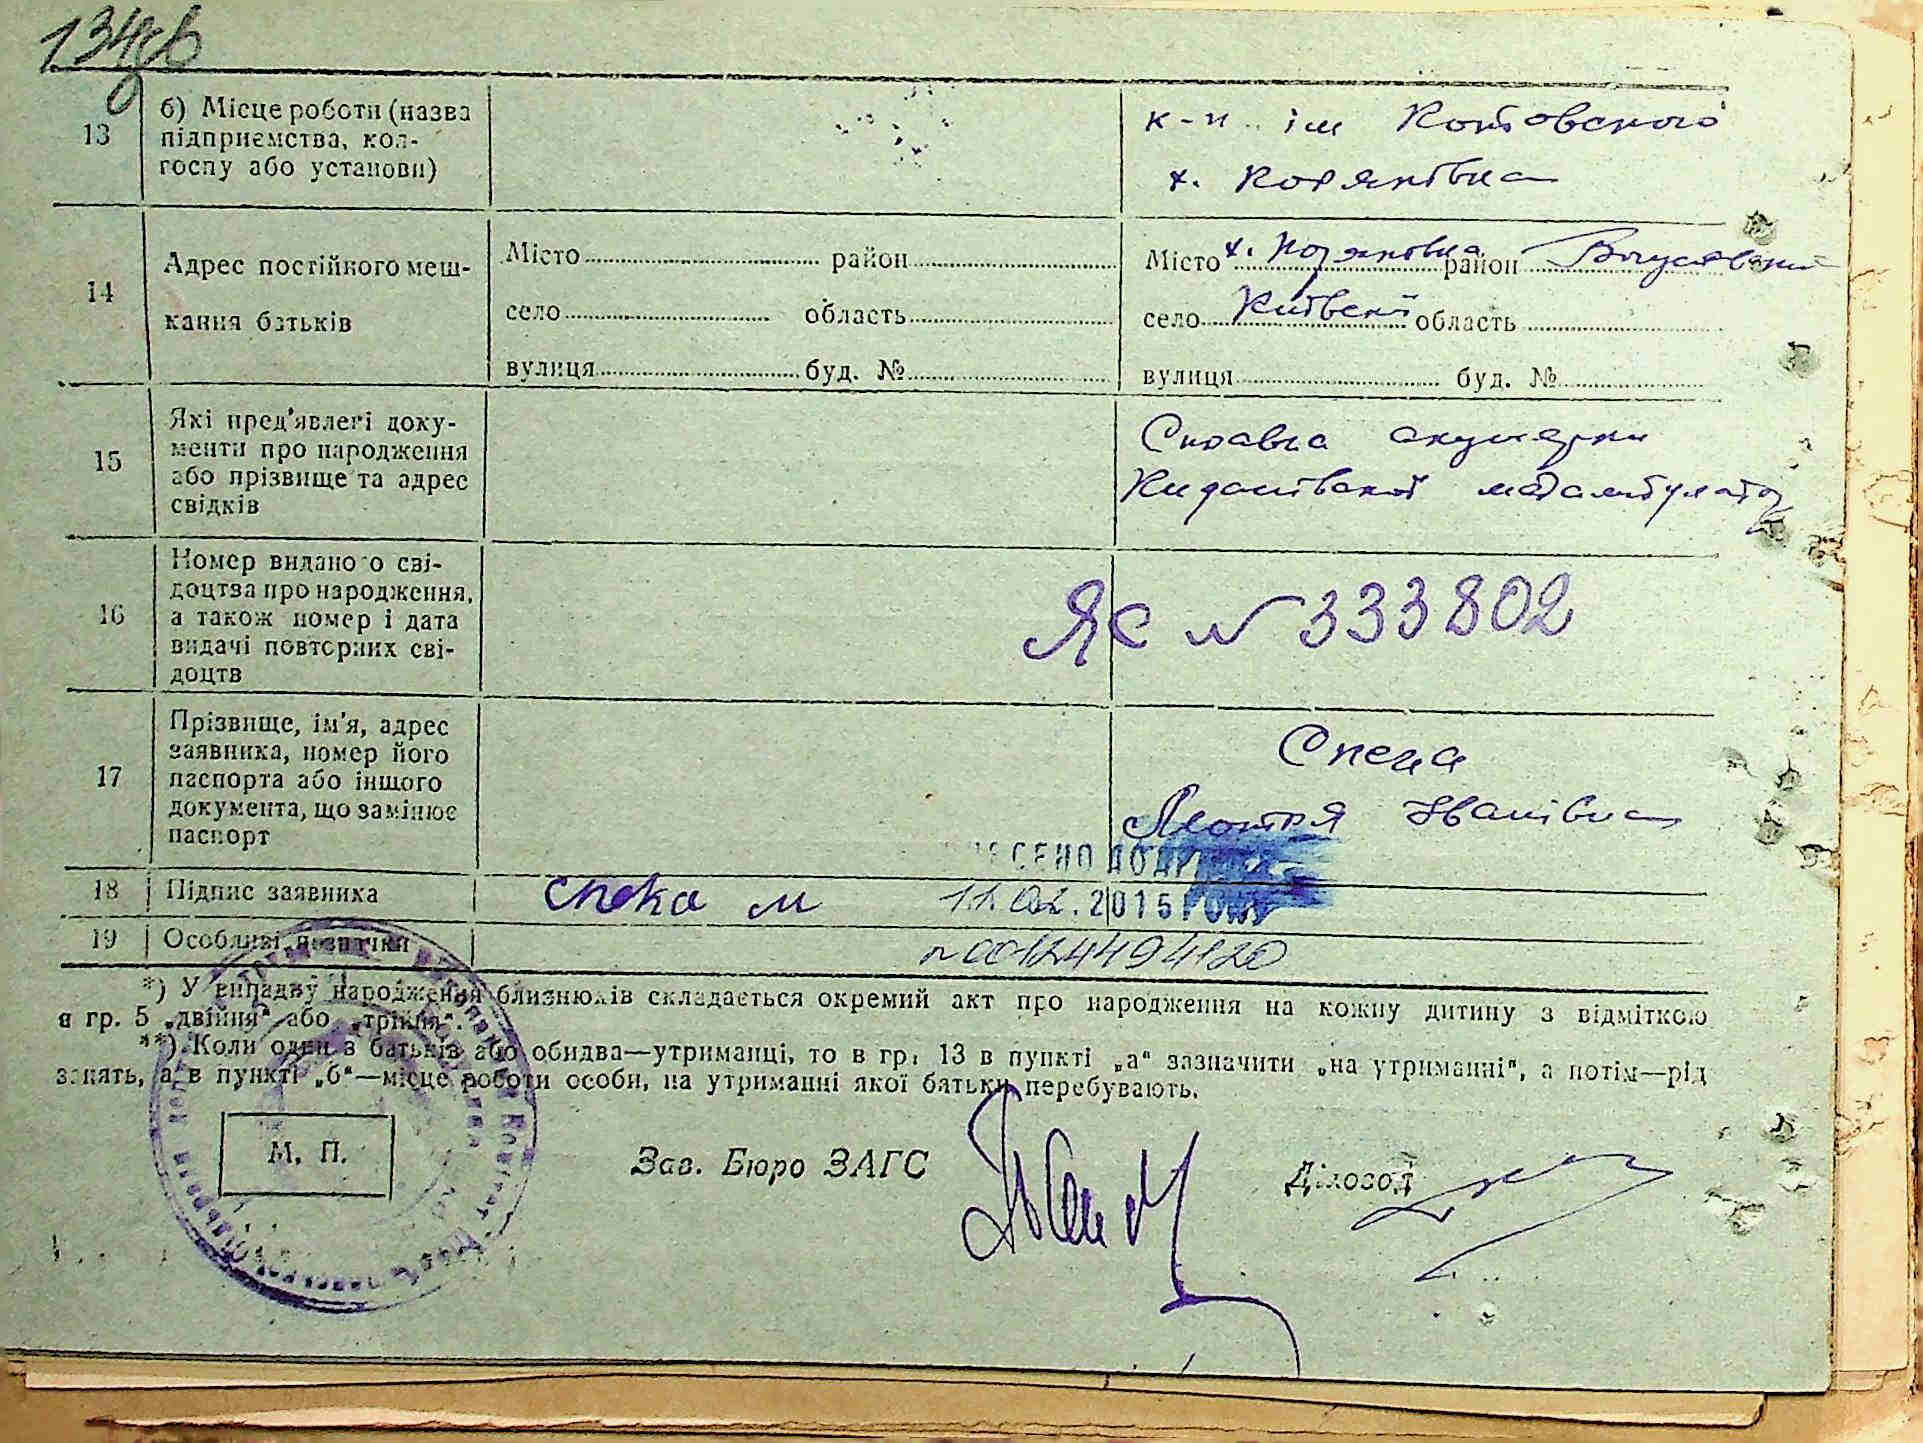 134зв
13
б) Місце роботи (назва
підприємства, кол-
госпу або установи)
к-п ім Котовського
х. Коряківка
14
Адрес постійного меш-
кання батьків
Місто район
село область
вулиця буд. №
Місто х. Коряківка район Богуславський
село Київської область
вулиця буд. №
15
Які пред'явлені доку-
менти про народження
або прізвище та адрес
свідків
Справка акушерки
16
Номер виданого сві-
доцтва про народження,
а також номер і дата
видачі повторних сві-
доцтв
ЯС N 333802
17
Прізвище, ім'я, адрес
заявника, номер його
паспорта або іншого
документа, що замінює
паспорт
Спека
Мотря Іванівна
18
Підпис заявника
спека м
11.02.2015 РОКУ
19
Особливі позначки
N 00124494120
*) У випадку народження близнюків складається окремий акт про народження на кожну дитину з відміткою
в гр. 5 „двійня“ або „трійня“.
**) Коли один з батьків або обидва—утриманці, то в гр. 13 в пункті „а“ зазначити „на утриманні“, а потім—рід
занять, а в пункті „б“—місце роботи особи, на утриманні якої батьки перебувають.
М. П.
Зав. Бюро ЗАГС
Діловод